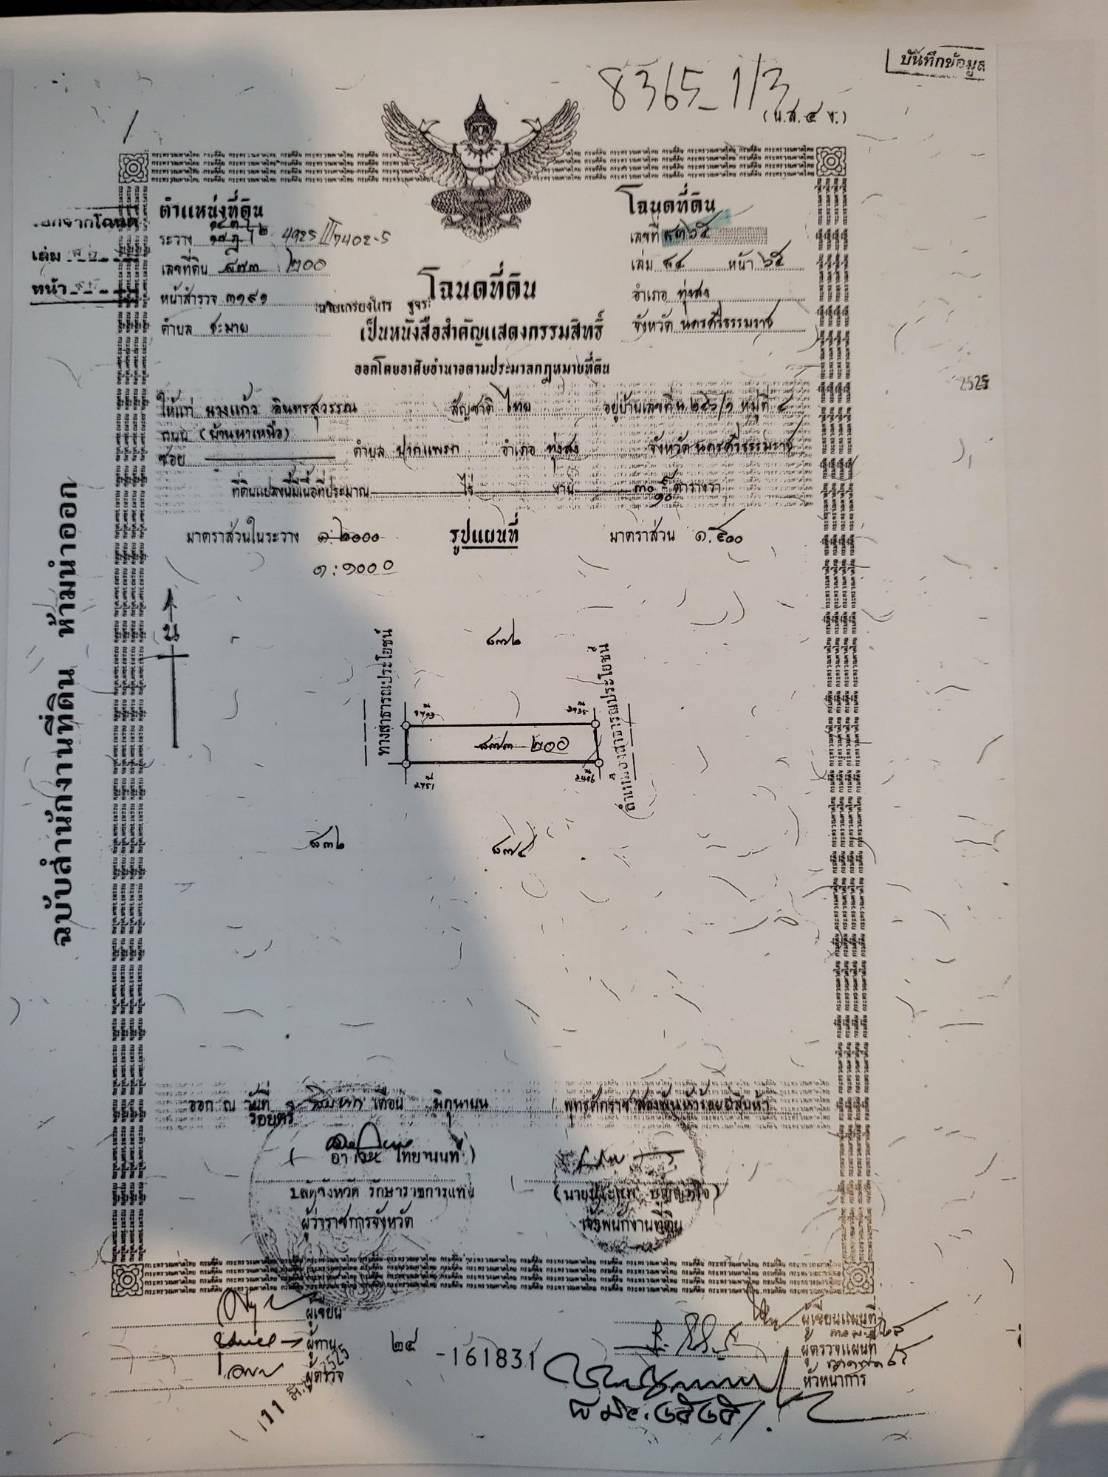 บันทึกข้อมูล
8365-1/3
(น.ส.๔ จ.)
ตำแหน่งที่ดิน
ระวาง 4925 III 7402-5
เลขที่ดิน ๘๗๓ ๒๐๐
หน้าสำรวจ ๓๑๙๑
ตำบล ชะมาย
โฉนดที่ดิน
เลขที่ ๘๓๖๕
เล่ม ๘๔ หน้า ๖๕
อำเภอ ทุ่งสง
จังหวัด นครศรีธรรมราช
เล่ม
หน้า
โฉนดที่ดิน
เป็นหนังสือสำคัญแสดงกรรมสิทธิ์
ออกโดยอาศัยอำนาจตามประมวลกฎหมายที่ดิน
2525
ให้แก่ นางแก้ว จินทรสุวรรณ สัญชาติ ไทย อยู่บ้านเลขที่ ๒๕๖/๑ หมู่ที่ ๔
ถนน (บ้านนาเหนือ)
ซอย ตำบล ปากแพรก อำเภอ ทุ่งสง จังหวัด นครศรีธรรมราช
ที่ดินแปลงนี้มีเนื้อที่ประมาณ ไร่ งาน ตารางวา
มาตราส่วนในระวาง ๑:๒๐๐๐ รูปแผนที่ มาตราส่วน ๑:๕๐๐
๑:๑๐๐๐
น
ทางสาธารณประโยชน์
๘๗๒
๘๗๓ ๒๐๐
ลำเหมืองสาธารณประโยชน์
๘๓๒
๘๗๔
ฉบับสำนักงานที่ดิน ห้ามนำออก
ออก ณ วันที่ สิบเอ็ด เดือน มิถุนายน พุทธศักราช สองพันห้าร้อยยี่สิบห้า
ร้อยตรี
ปลัดจังหวัด รักษาราชการแทน
ผู้ว่าราชการจังหวัด
เจ้าพนักงานที่ดิน
ผู้เขียน
ผู้ทาน
ผู้ตรวจ
๒๔ -161831
ผู้เขียนแผนที่
ผู้ตรวจแผนที่
หัวหน้าการ